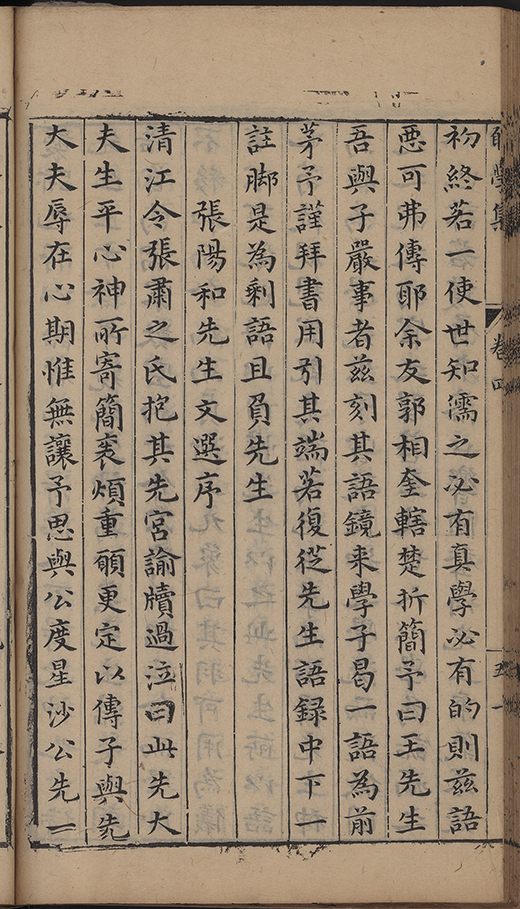 學集
卷四
五一
初終若一使世知濡之必有真學必有的則茲語
惡可弗傳耶余友郭相奎轄楚折簡予曰王先生
吾與子嚴事者茲刻其語鏡来學子曷一語為前
茅予謹拜書用引其端若復從先生語録中下一
註脚是為剩語且負先生
張陽和先生文選序
清江令張肅之氏抱其先宮諭牘過泣曰此先大
夫生平心神所寄簡袠煩重願更定以傳子與先
大夫辱在心期惟無讓予思與公度星沙公先一